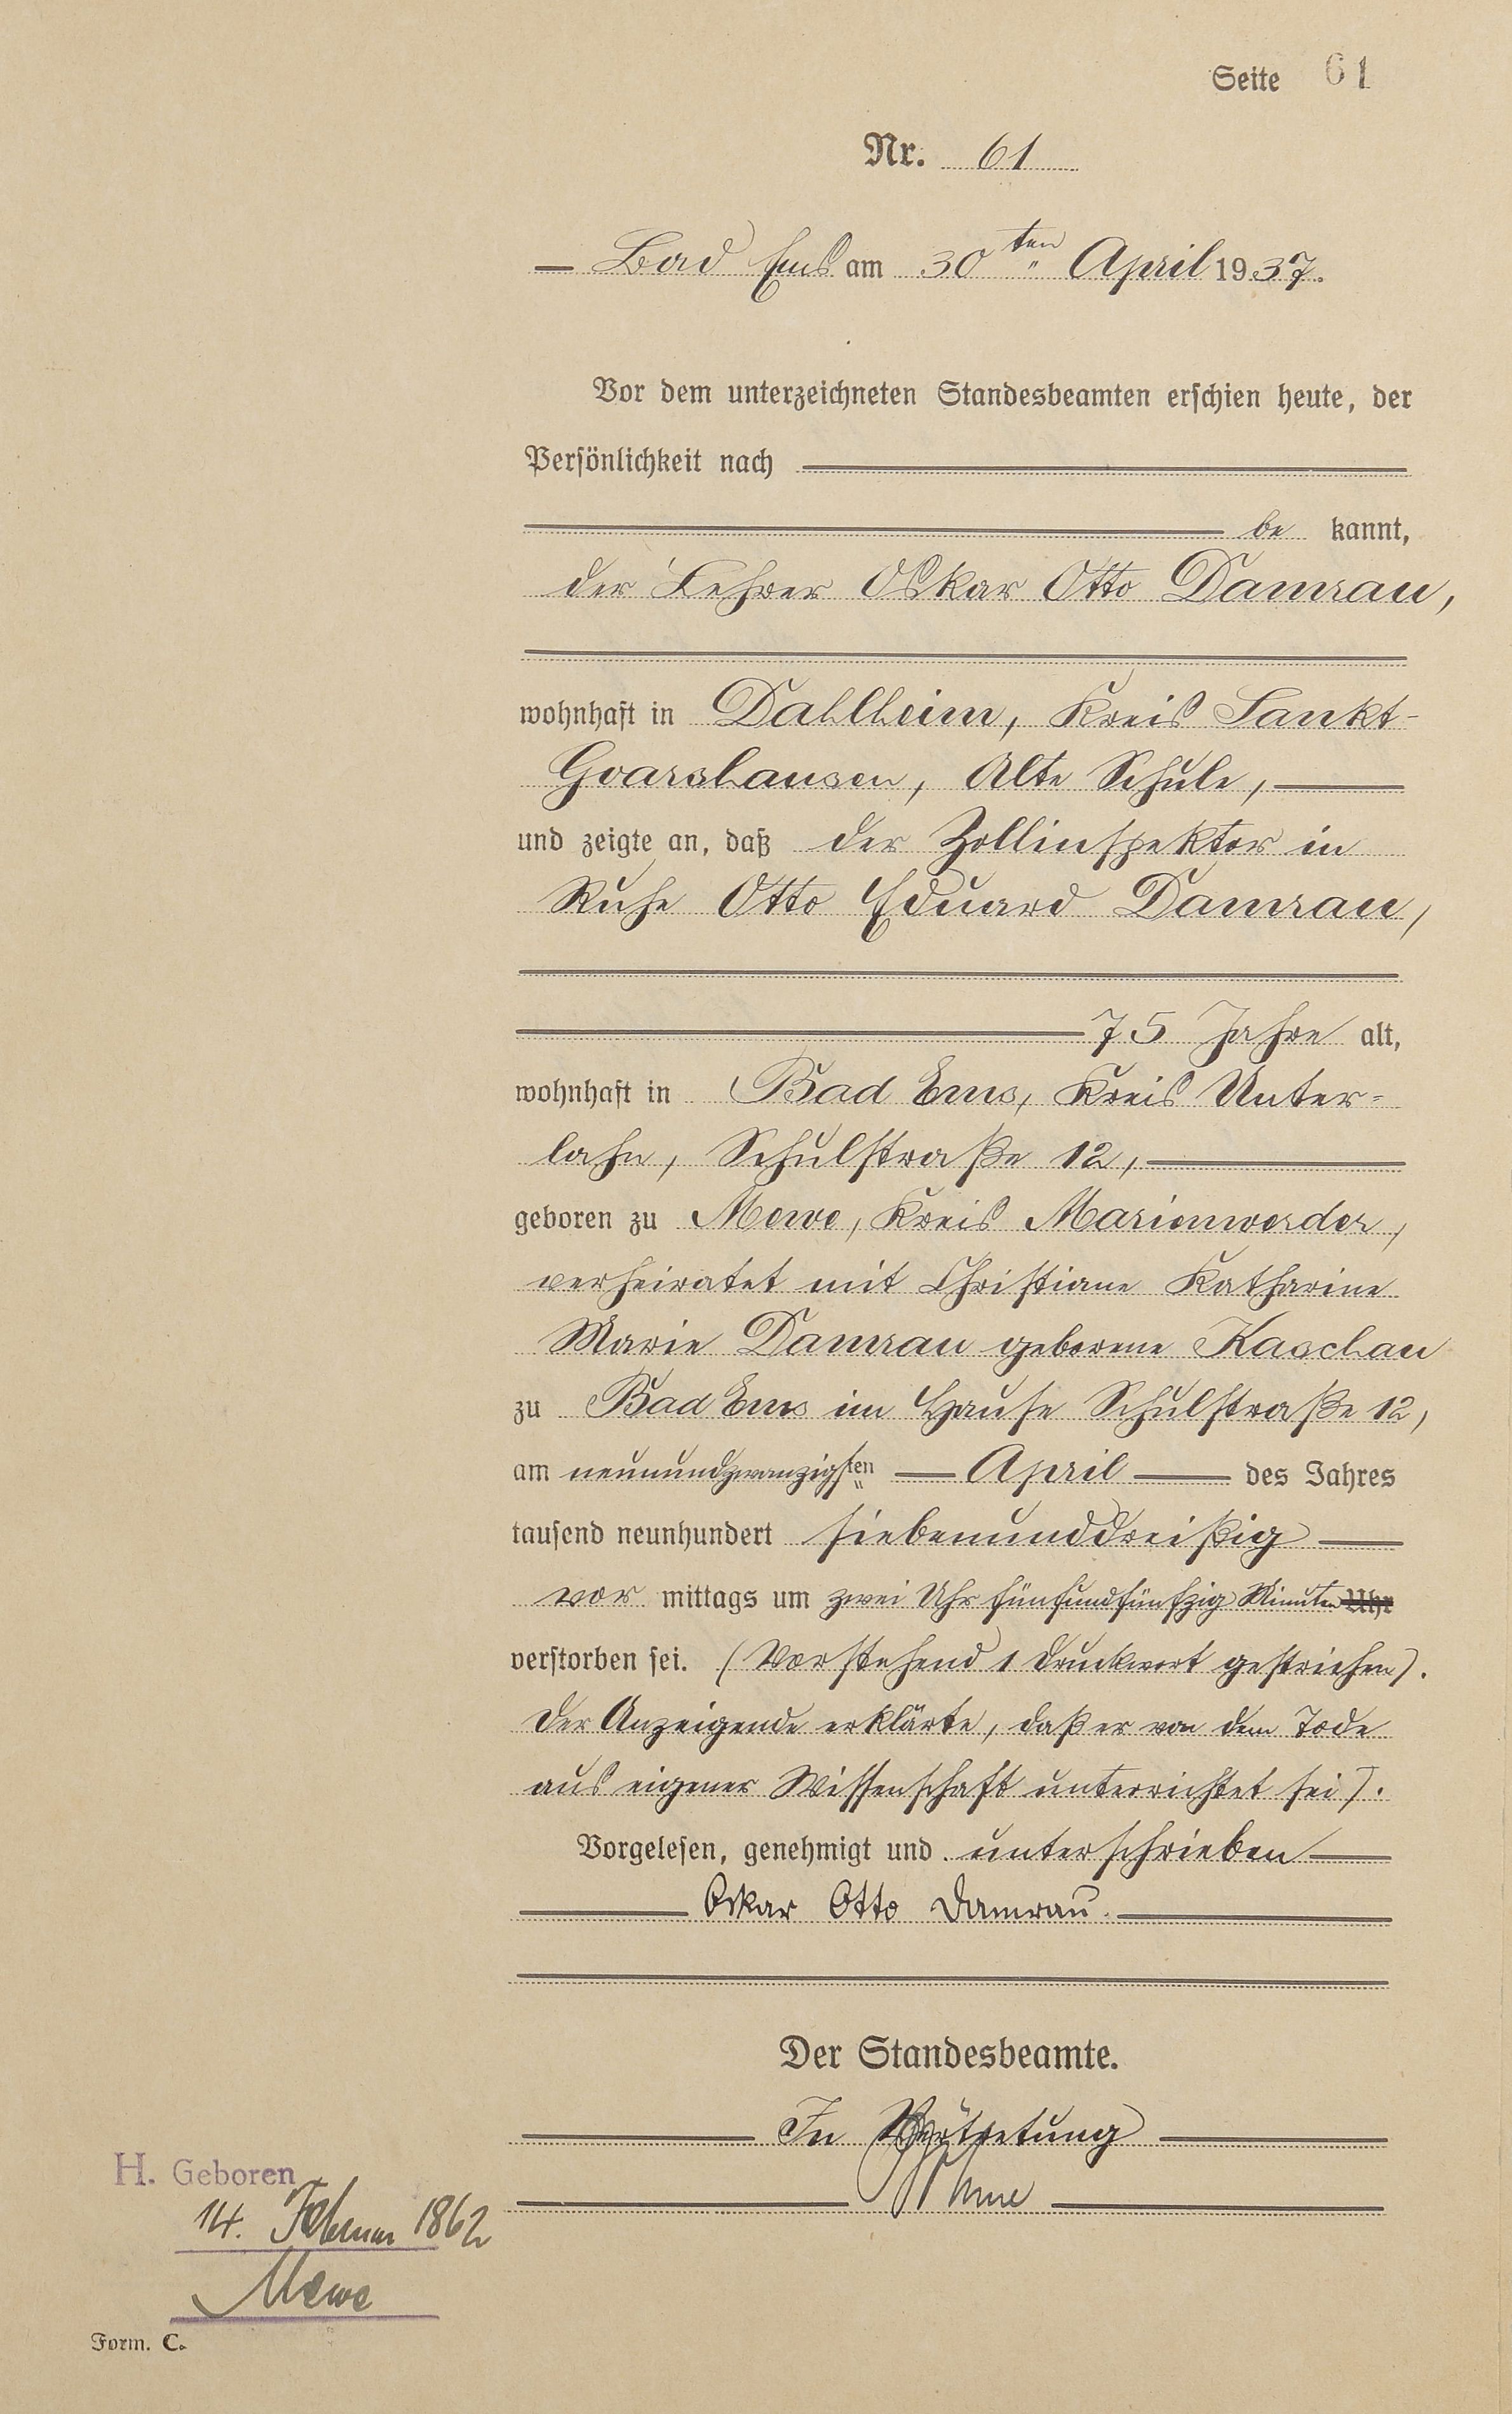 Seite 61
Nr. 61
Bad Ems am 30ten April 1937.
Vor dem unterzeichneten Standesbeamten erschien heute, der
Persönlichkeit nach
be kannt,
der Lehrer Oskar Otto Damrau,
wohnhaft in Dahlheim, Kreis Sankt-
Goarshausen, Alte Schule,
und zeigte an, daß der Zollinspektor in
Ruhe Otto Eduard Damrau,
75 Jahre alt,
wohnhaft in Bad Ems, Kreis Unter-
lahn, Schulstraße 12,
geboren zu Mewe, Kreis Marienwerder,
verheiratet mit Christiane Katharine
Marie Damrau geborene Kaschau
zu Bad Ems im Hause Schulstraße 12,
am neunundzwanzigsten April des Jahres
tausend neunhundert siebenunddreißig
vor mittags um zwei Uhr fünfundfünfzig Minuten Uhr
verstorben sei. (Vorstehend 1 Druckwort gestrichen).
Der Anzeigende erklärte, daß er von dem Tode
aus eigener Wissenschaft unterrichtet sei).
Vorgelesen, genehmigt und unterschrieben
Oskar Otto Damrau.
Der Standesbeamte.
In Vertretung
H. Geboren
14. Februar 1862
Mewe
Form. C.